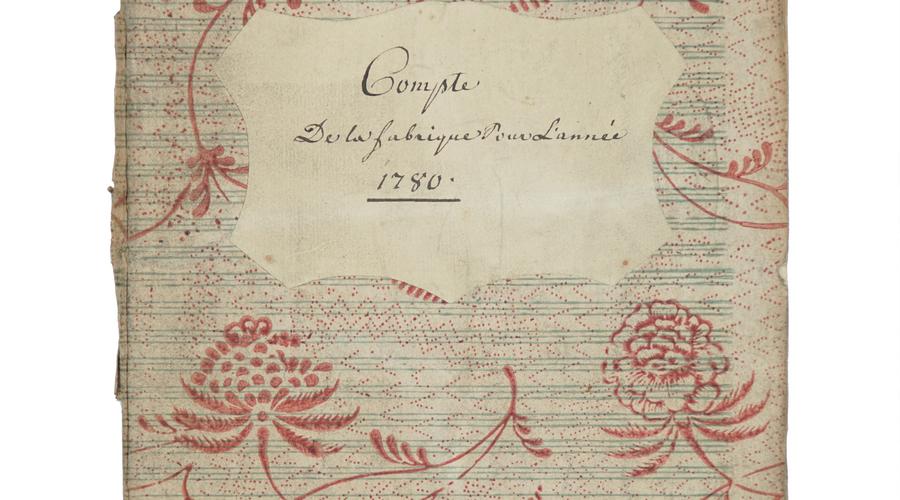 Compte
De la fabrique Pour L'année
1780.